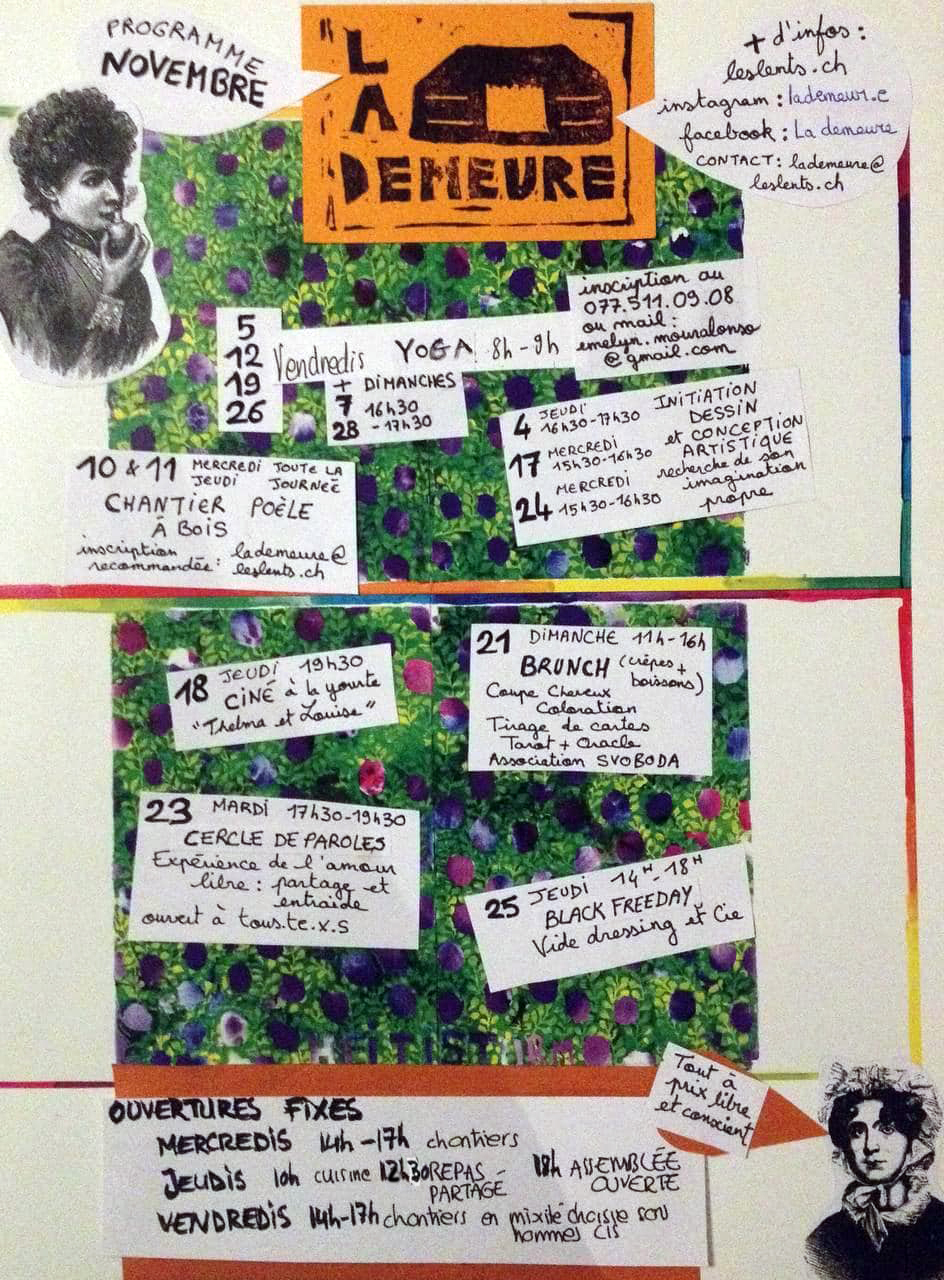 PROGRAMME
NOVEMBRE
LA
DEMEURE
+ d'infos :
leslents.ch
instagram : lademeur.e
facebook : La demeure
CONTACT : lademeure@
leslents.ch
inscription au
077.511.09.08
ou mail :
emelyn.mouralonso
@gmail.com
5
12
19
26
Vendredis YOGA 8h - 9h
+ DIMANCHES
7 16h30
28 - 17h30
4 JEUDI
16h30-17h30
17 MERCREDI
15h30-16h30
24 MERCREDI
15h30-16h30
INITIATION
DESSIN
et CONCEPTION
ARTISTIQUE
recherche de son
imagination
propre
10 & 11 MERCREDI TOUTE LA
JEUDI JOURNÉE
CHANTIER POÈLE
À BOIS
inscription
recommandée : lademeure@
leslents.ch
18 JEUDI 19h30
CINÉ à la yourte
"Thelma et Louise"
21 DIMANCHE 11h-16h
BRUNCH (crêpes +
boissons)
Coupe Cheveux
Coloration
Tirage de cartes
Tarot + Oracle
Association SVOBODA
23 MARDI 17h30-19h30
CERCLE DE PAROLES
Expérience de l'amour
libre : partage et
entraide
ouvert à tous.te.x.s
25 JEUDI 14H-18H
BLACK FREEDAY
Vide dressing et Cie
Tout à
prix libre
et conscient
OUVERTURES FIXES
MERCREDIS 14h-17h chantiers
JEUDIS 10h cuisine 12h30 REPAS
PARTAGÉ
18h ASSEMBLÉE
OUVERTE
VENDREDIS 14h-17h chantiers en mixité choisie sans
hommes cis